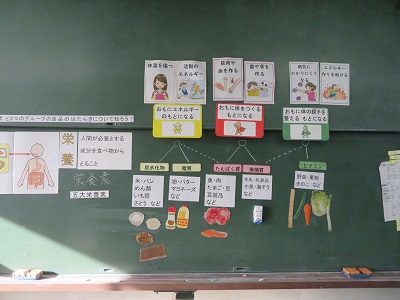 体温を保つ
活動の
エネルギー
筋肉や
血を作る
骨や歯を
作る
病気に
かかりにくく
なる
エネルギー
作りを助ける
と3つのグループの食品のはたらきについて知ろう！
おもにエネルギー
のもとになる
おもに体をつくる
もとになる
おもに体の調子を
整えるもとになる
栄
養
人間が必要とする
成分を食べ物から
とること
五大栄養素
炭水化物
脂質
たんぱく質
無機質
ビタミン
米・パン
めん類
いも類
さとう
など
油・バター
マヨネーズ
など
魚・肉
たまご・豆
豆製品
など
牛乳・乳製品
小魚・海そう
など
野菜・果物
きのこ など